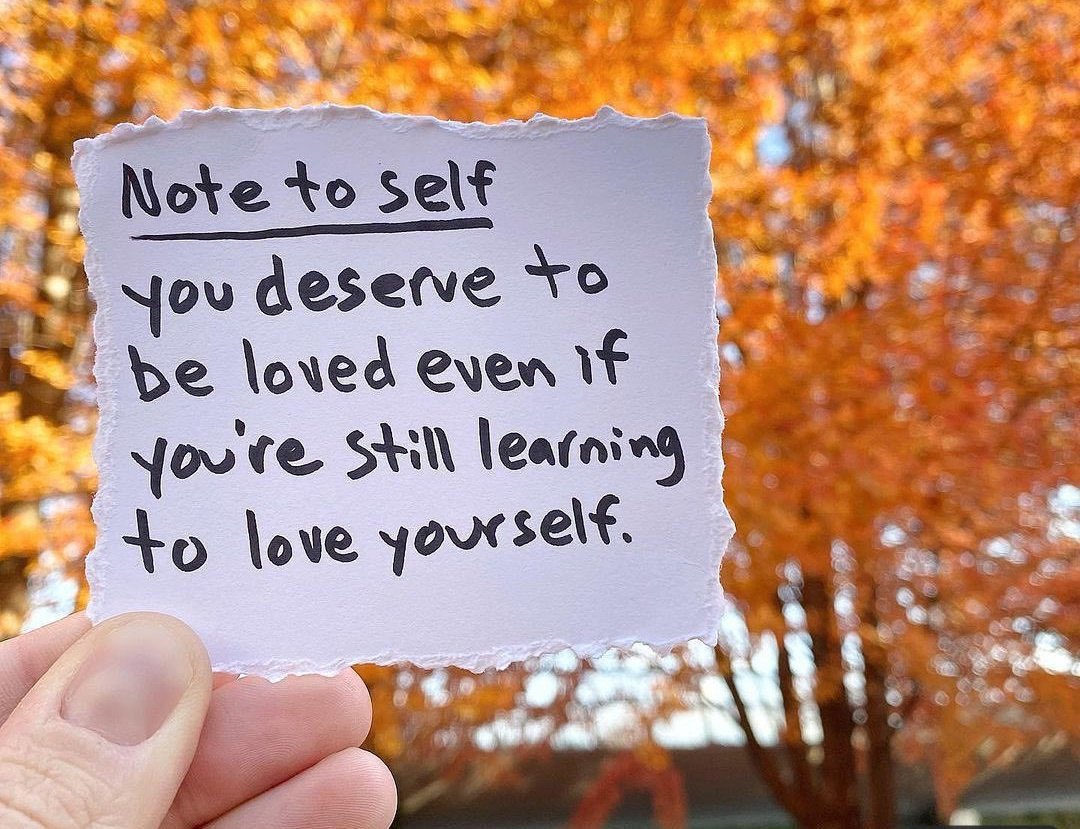 Note to self
you deserve to
be loved even if
you're still learning
to love yourself.